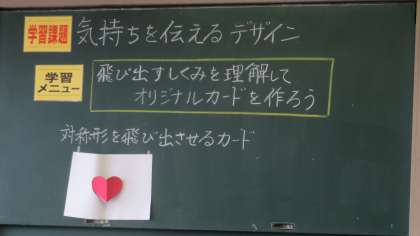 学習課題 気持ちを伝えるデザイン
学習メニュー 飛び出すしくみを理解して
オリジナルカードを作ろう
対称形を飛び出させるカード